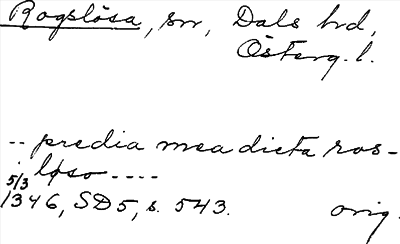 Rogslösa, sn, Dals hrd,
Österg. l.
.. predia mea dicta ros-
løso ----
5/3
1346, SD5, s. 543.
orig.